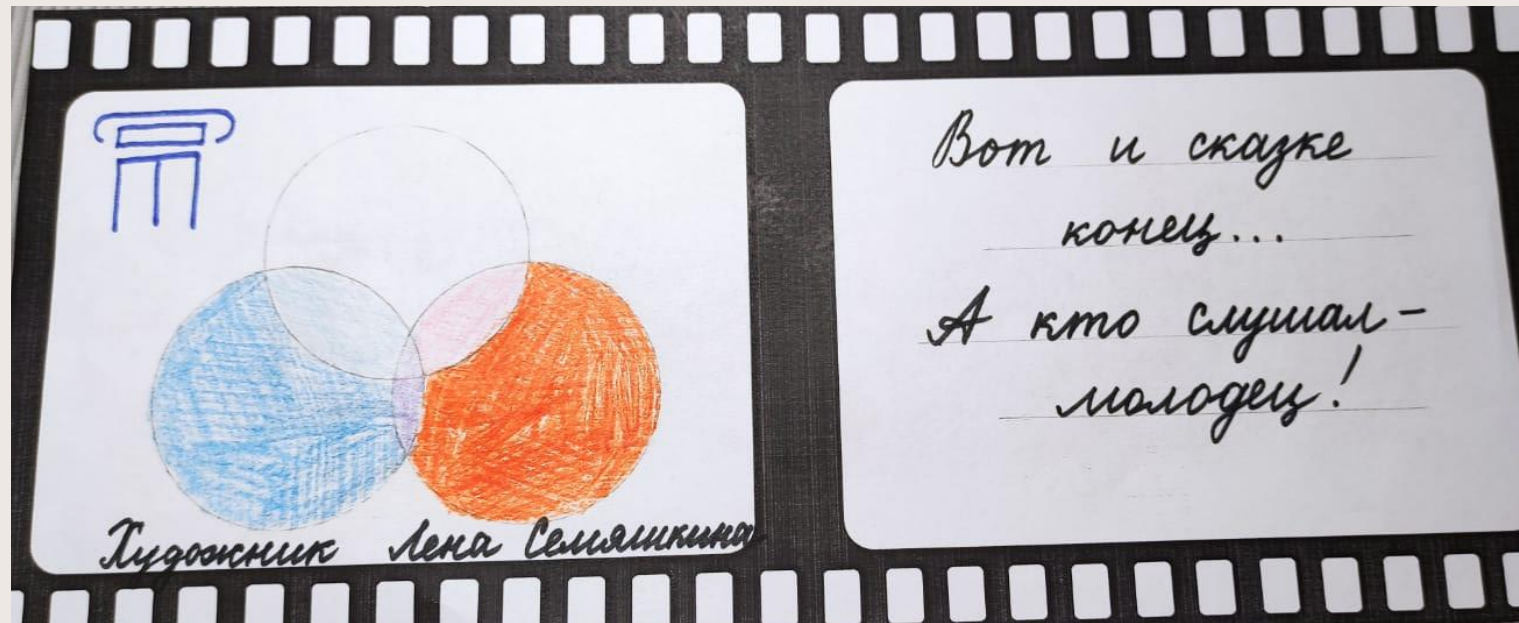 Художник Лена Семяшкина
Вот и сказке
конец...
А кто слушал-
молодец!